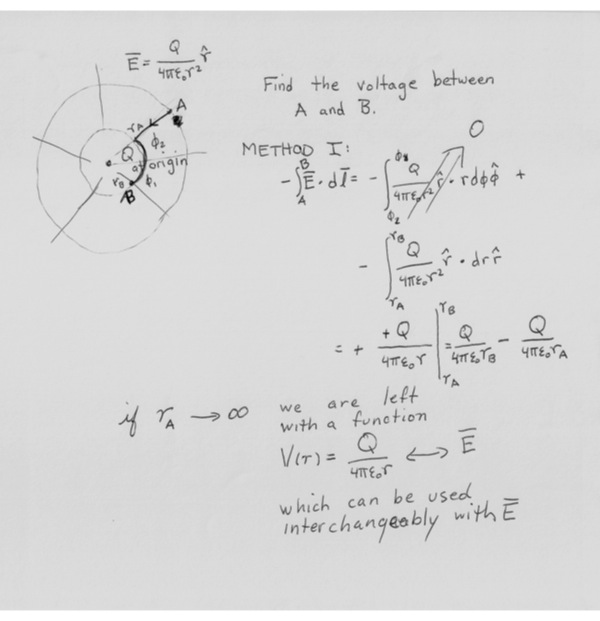 E̅ = Q/(4πε₀r²) r̂
Find the voltage between
A and B.
A
r_A
φ₂
Q
at origin
r_B φ₁
B
METHOD I:
-∫_A^B E̅ · dl̅ = -∫_φ₂^φ₁ Q/(4πε₀r²) r̂ · r dφ φ̂ + 0
- ∫_{r_A}^{r_B} Q/(4πε₀r²) r̂ · dr r̂
= + +Q/(4πε₀r) |_{r_A}^{r_B} = Q/(4πε₀r_B) - Q/(4πε₀r_A)
if r_A → ∞ we are left
with a function
V(r) = Q/(4πε₀r) ↔ E̅
which can be used
interchangeably with E̅